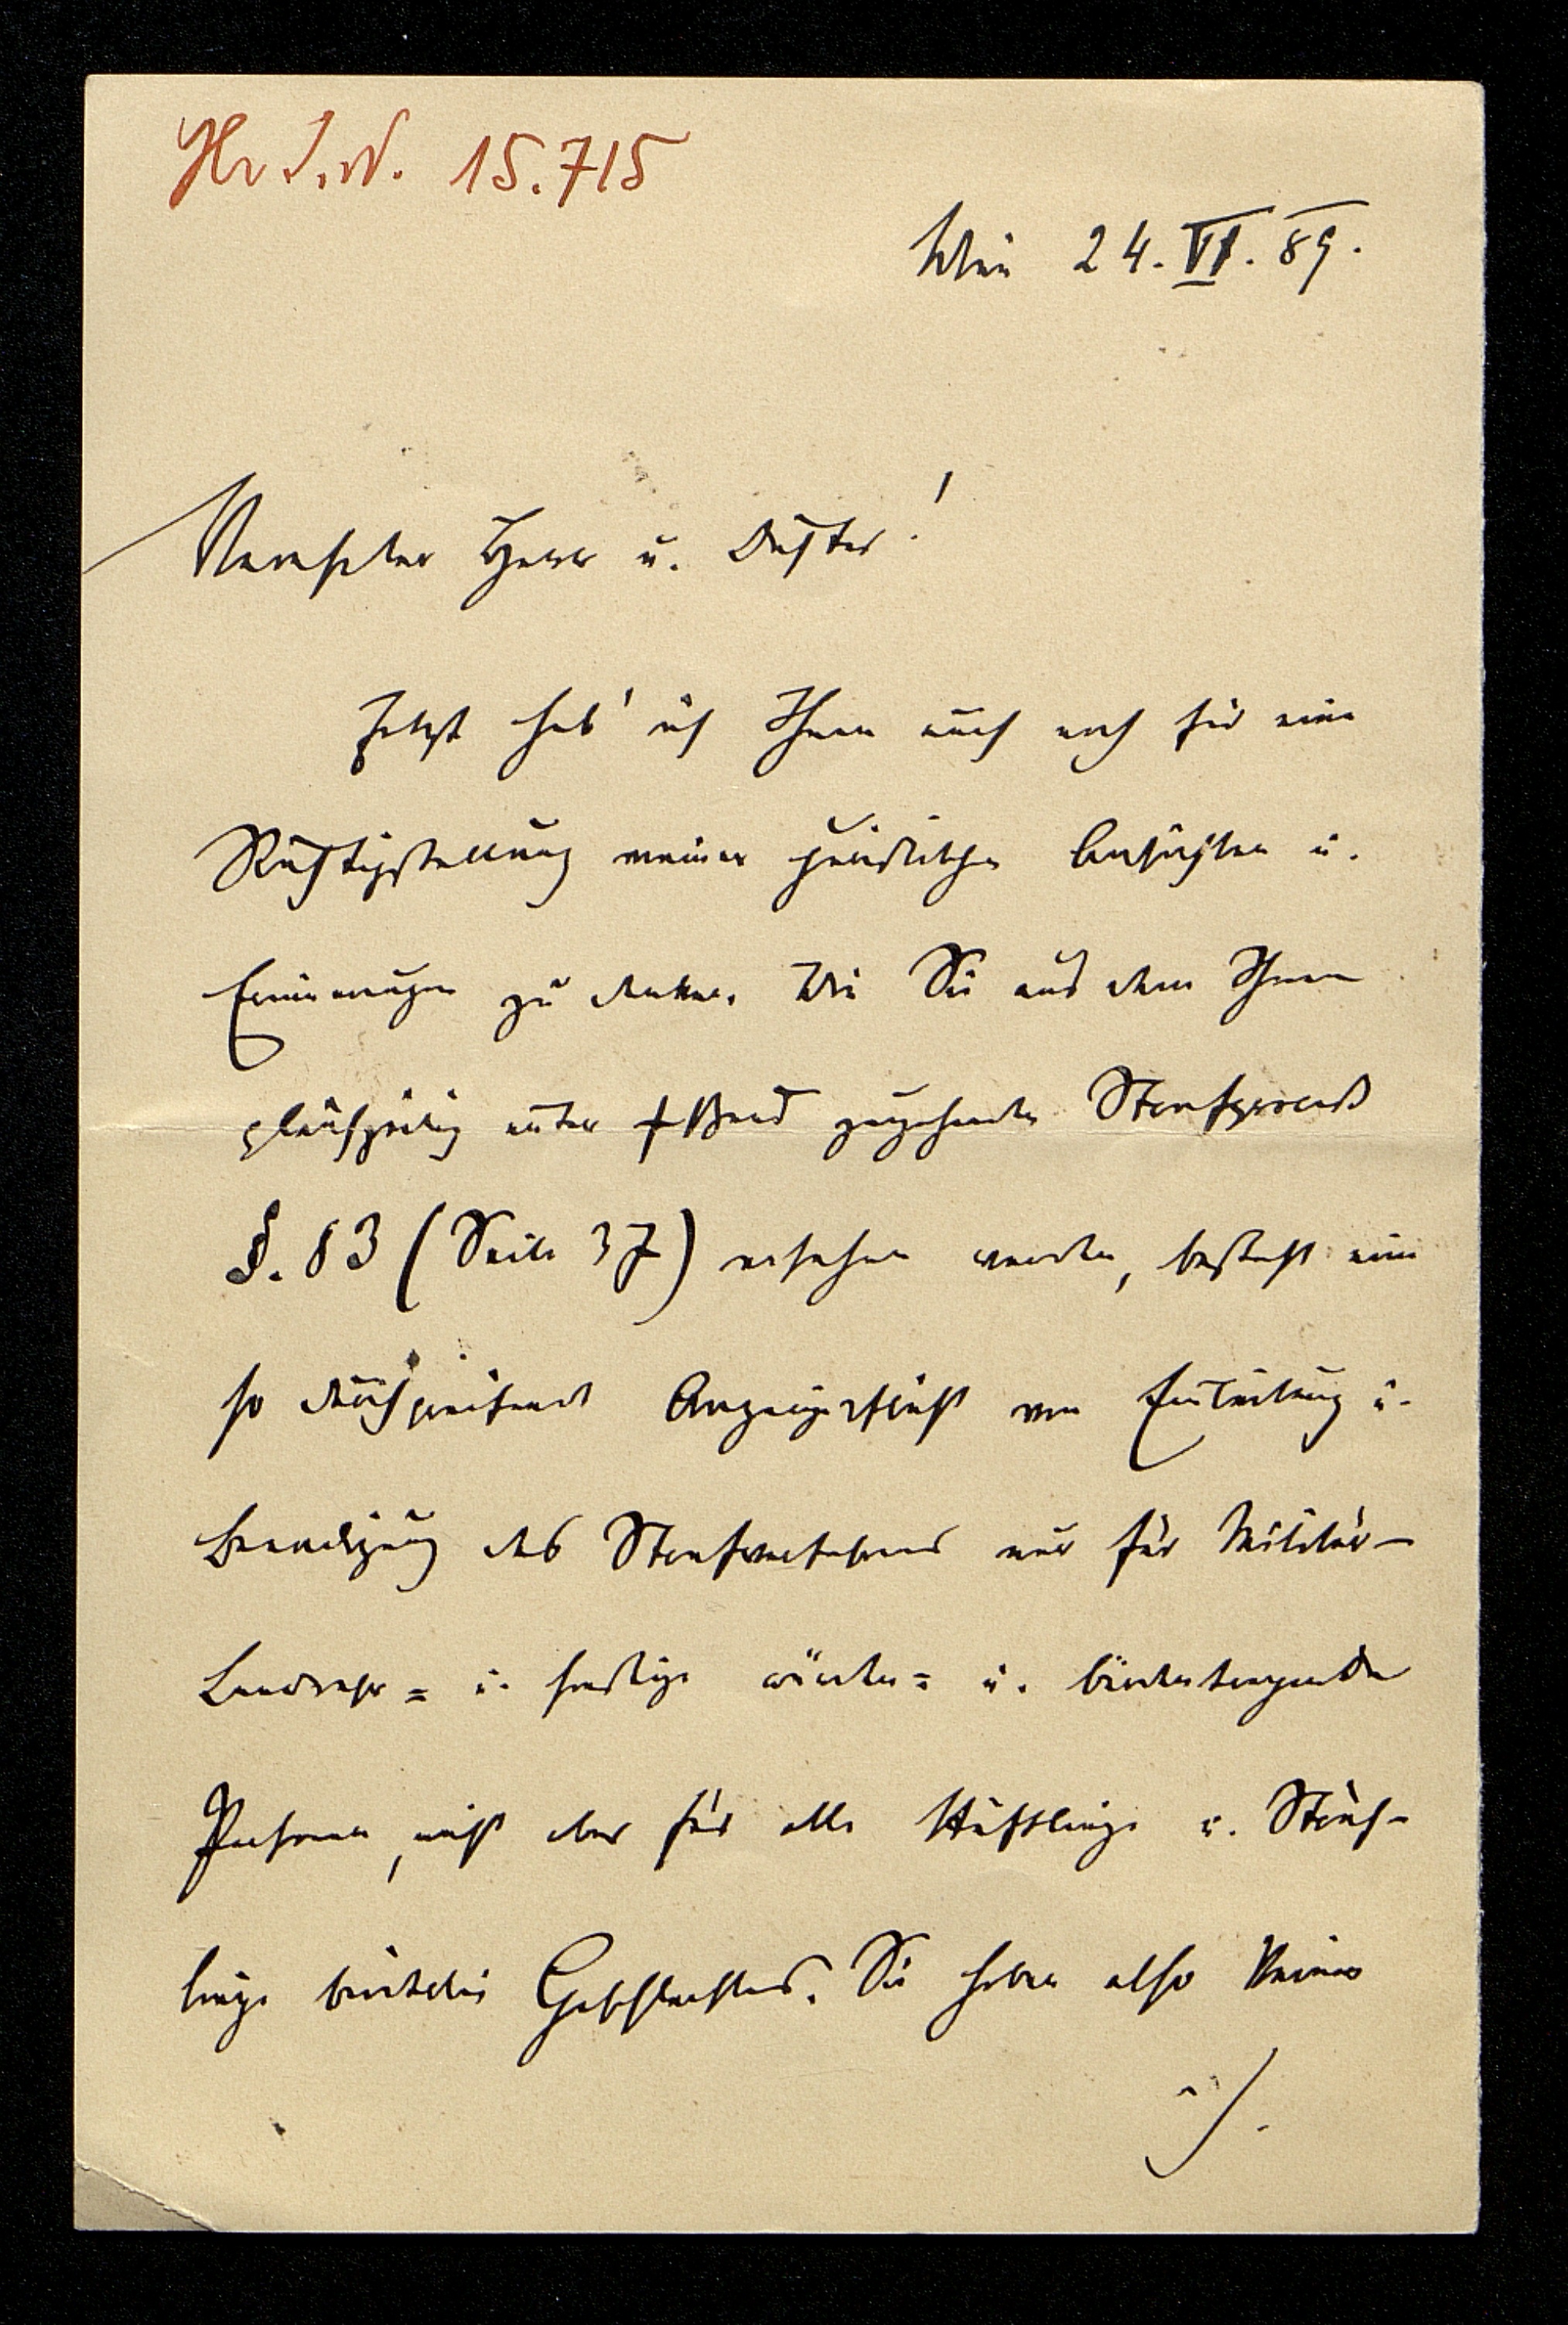 Hr I.N. 15.715
Wien 24. VI. 89.
Verehrter Herr u. Dichter!
Jetzt hab' ich Ihnen auch noch für eine
Richtigstellung meiner juristischen Ansichten u.
Erinnerungen zu danken. Wie Sie aus dem Ihnen
gleichzeitig unter Xband zugehenden Strafproceß
§. 83 (Seite 37) ersehen werden, besteht eine
so durchgreifende Anzeigepflicht von Einleitung u.
Beendigung des Strafverfahrens nur für Militär-
Landwehr= u. sonstige würden= u. bürdentragende
Personen, nicht aber für alle Häftlinge u. Sträf-
linge beiderlei Geschlechtes. Sie haben also keinen
./.